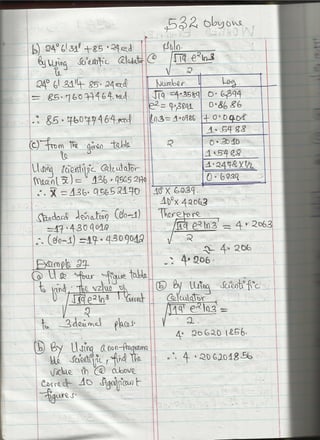 532 Obyone
b) 24° 6' 31" + 85.24rad
By Using Scientific Calculator
is
24° 6' 31" + 85.24rad
= 85.76077464rad
∴ 85.76077464rad
(c) from the given table
is
Using scientific calculator
Mean (x̄) = 136.9565217
∴ x̄ = 136.9565217
Standard deviation (σn-1)
= 17.4309012
∴ (σn-1) = 17.4309012
Example 27
(a) Use four figure table
to find the value of
√19 e² ln3 correct
2
to 3 decimal places
(b) By Using a non-programma
ble scientific, find the
value in (a) above
correct 10 significant
figures
Soln
(a) √19 e² ln3
2
Number Log
√19 = 4.3589 0.6394
e² = 7.3891 0.8686
ln3 = 1.0986 + 0.0408
1.5488
2 0.3010
1.2478 x ½
0.6239
10^0.6239
10^0 x 4.2063
Therefore
√19 e² ln3 = 4.2063
2
≈ 4.206
∴ 4.206
(b) By Using Scientific
Calculator
√19 e² ln3 =
2
4.206201856
∴ 4.206201856